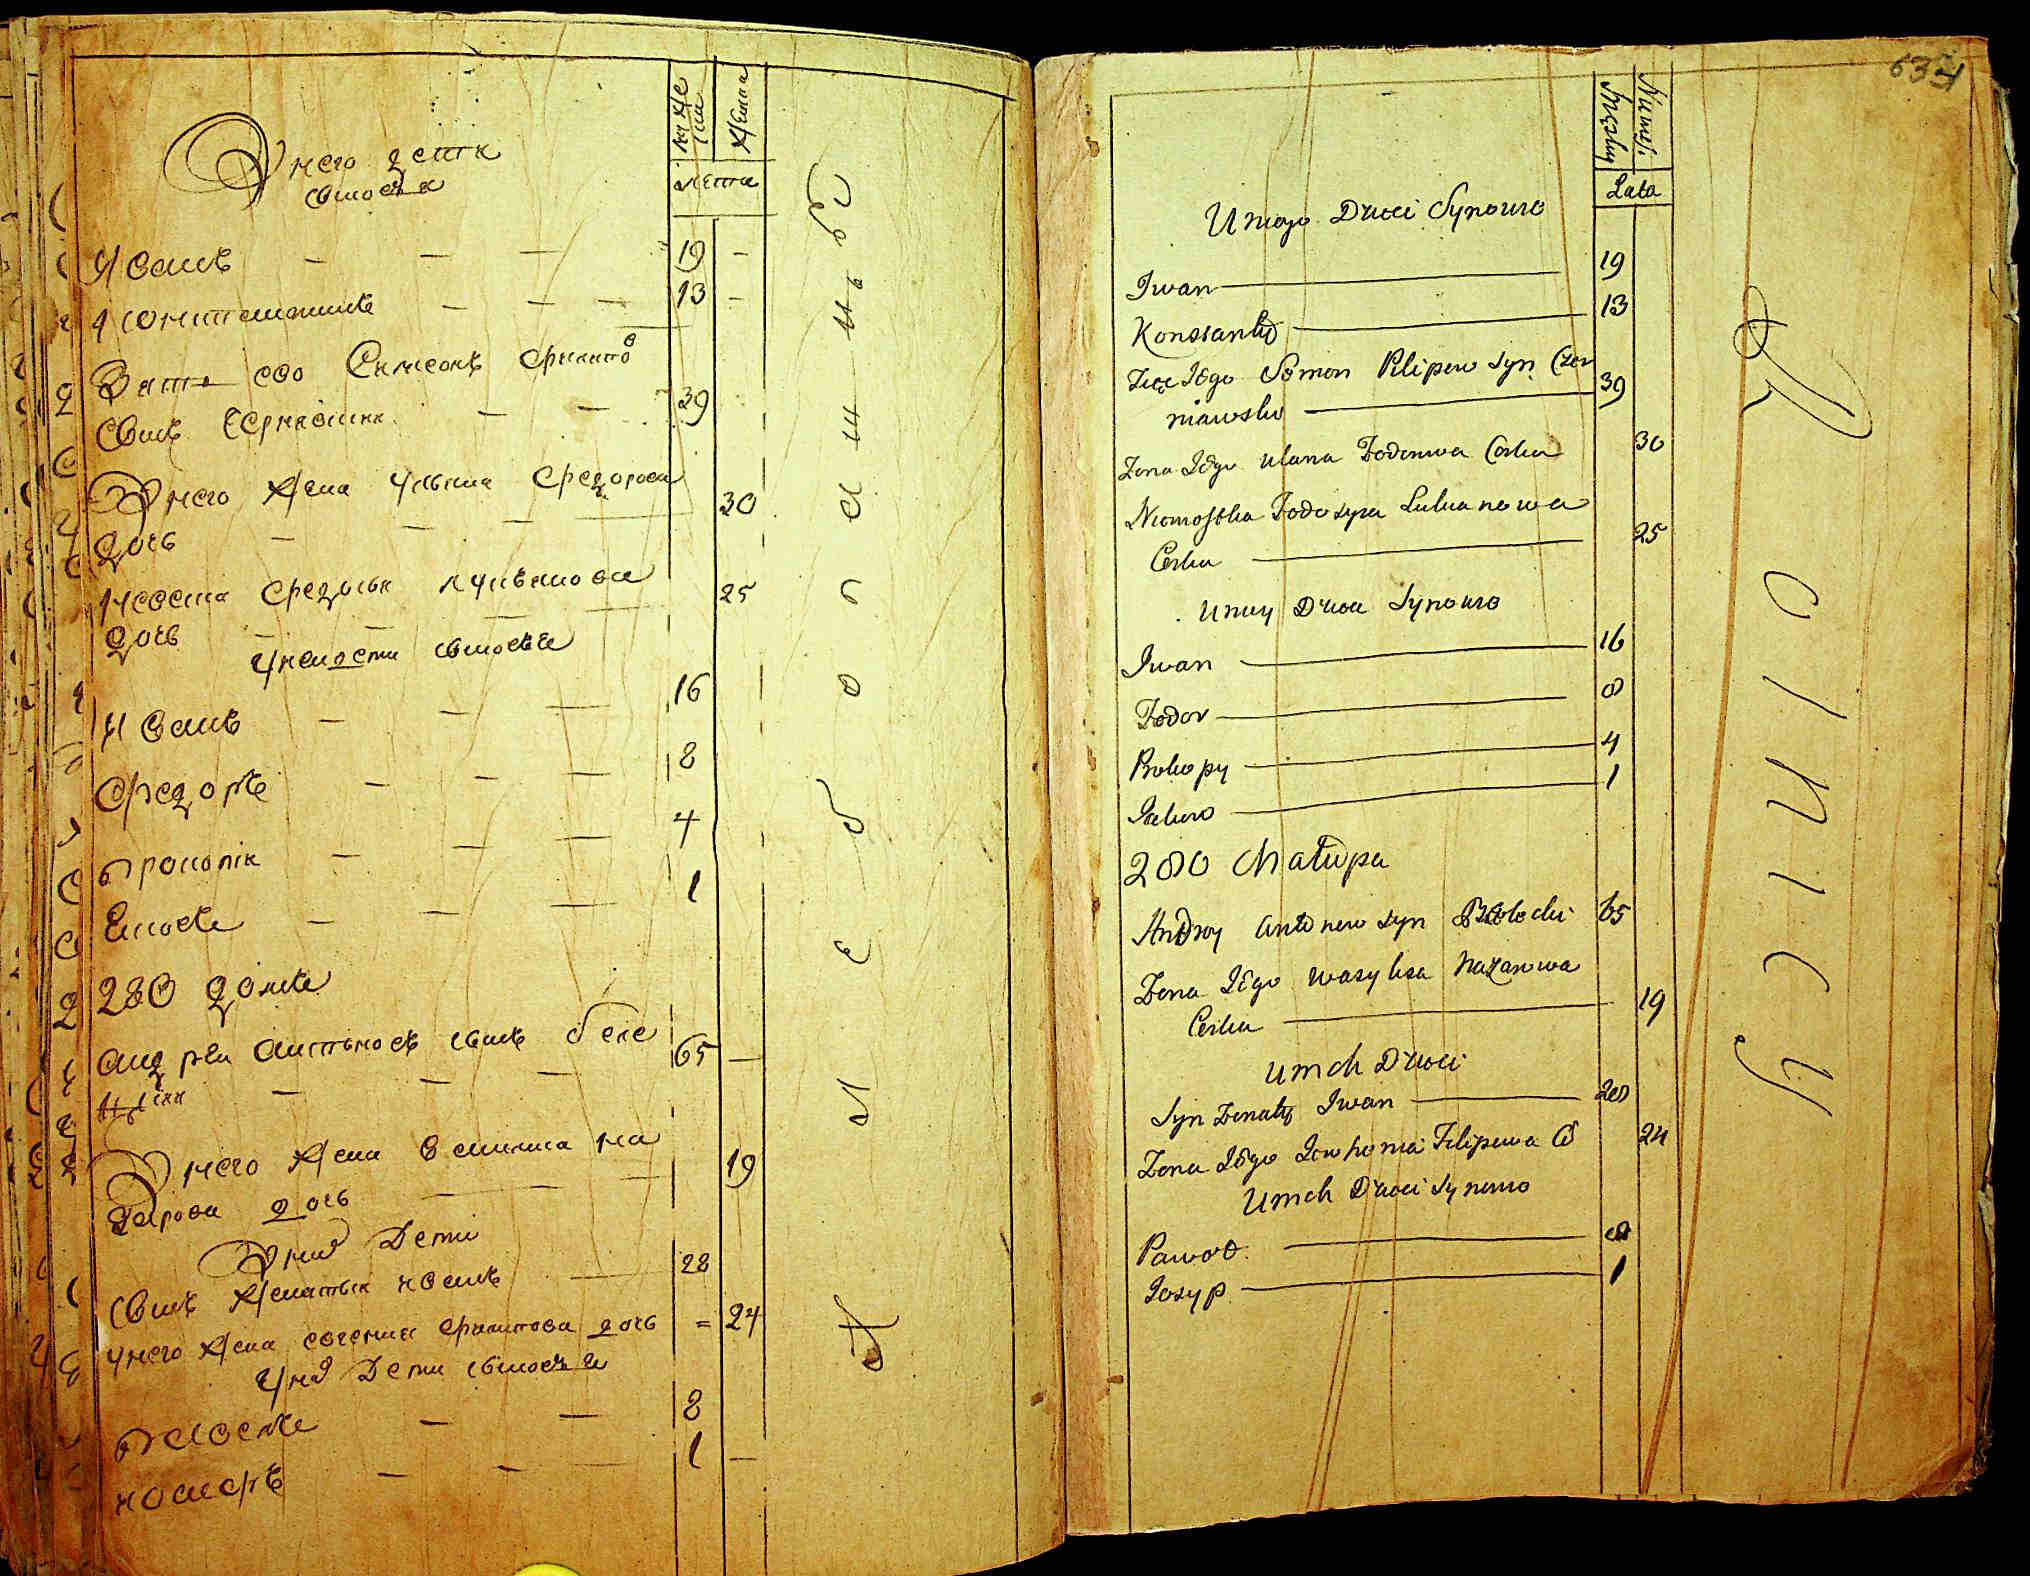 У него дети
сыновя
Иванъ 19
Константинъ 13
Зять его Симеонъ Филипо
сынъ Чернявски 39
У него жена Ульяна Федорова
дочь 30
Федосья Лукьянова
дочь 25
У ней дети сыновья
Иванъ 16
Федоръ 8
Прокопiй 4
280 домъ
Андрей Антоновъ сынъ Беле
цкiй 65
У него жена Василиса На
зарова дочь 19
У них Дети
сынъ Женатый Иванъ 28
У него жена Евгения Филипова дочь 24
У них Дети сыновья
Павелъ 8
Иосифъ 1
лета
634
Męskiey
Lata
U niego Dzieci Synowie
Iwan 19
Konstanty 13
Zięć Iego Semon Pilipow Syn Czer
niawski 39
Zona Iego Ulana Fodorowa Corka 30
Fodosyia Lukianowa
Corka 25
U niey Dzieci Synowie
Iwan 16
Fodor 8
Prokopy 4
1
280 Chałupa
Andrey Antonow Syn Bielecki 65
Zona Iego Wasylisa Nazarowa
Corka 19
U nich Dzieci
Syn Zonaty Iwan 28
Zona Iego Iewhenia Filipowa C 24
U nich Dzieci Synowie
Paweł 8
Iosyp 1
Rolnicy